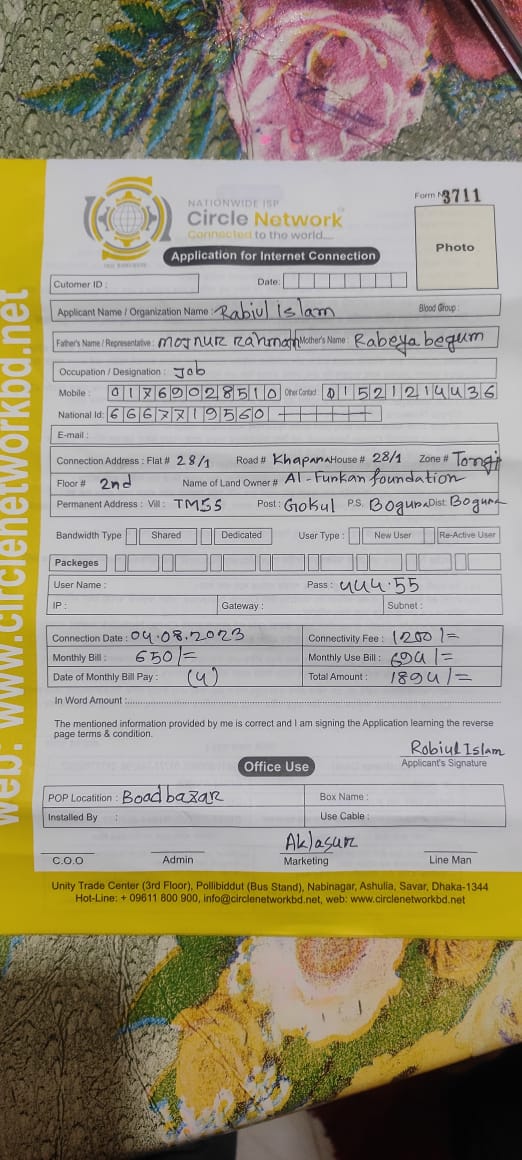 NATIONWIDE ISP
Circle Network
Connected to the world....
Form N 3711
Photo
Application for Internet Connection
Cutomer ID :
Date:
Applicant Name / Organization Name : Rabiul islam Blood Group :
Father's Name / Representative : Mother's Name : Rabeya begum
Occupation / Designation : Job
Mobile : 01769028510 Other Contact : 01521214436
National Id:
E-mail :
Connection Address : Flat # 28/1 Road # House # 28/1 Zone # Tongi
Floor # 2nd Name of Land Owner # Al-Funkan foundation
Permanent Address : Vill : TMSS Post : Gokul P.S. Bogura Dist: Bogura
Bandwidth Type Shared Dedicated User Type : New User Re-Active User
Packeges
User Name : Pass : 444.55
IP : Gateway : Subnet :
Connection Date : 04.08.2023 Connectivity Fee : 1200/=
Monthly Bill : 650/= Monthly Use Bill : 694/=
Date of Monthly Bill Pay : (4) Total Amount : 1894/=
In Word Amount :
The mentioned information provided by me is correct and I am signing the Application learning the reverse
page terms & condition.
Robiul Islam
Applicant's Signature
Office Use
POP Locatition : Boadbazar Box Name :
Installed By : Use Cable :
C.O.O Admin Marketing Line Man
Unity Trade Center (3rd Floor), Pollibiddut (Bus Stand), Nabinagar, Ashulia, Savar, Dhaka-1344
Hot-Line: + 09611 800 900, info@circlenetworkbd.net, web: www.circlenetworkbd.net
web: www.circlenetworkbd.net